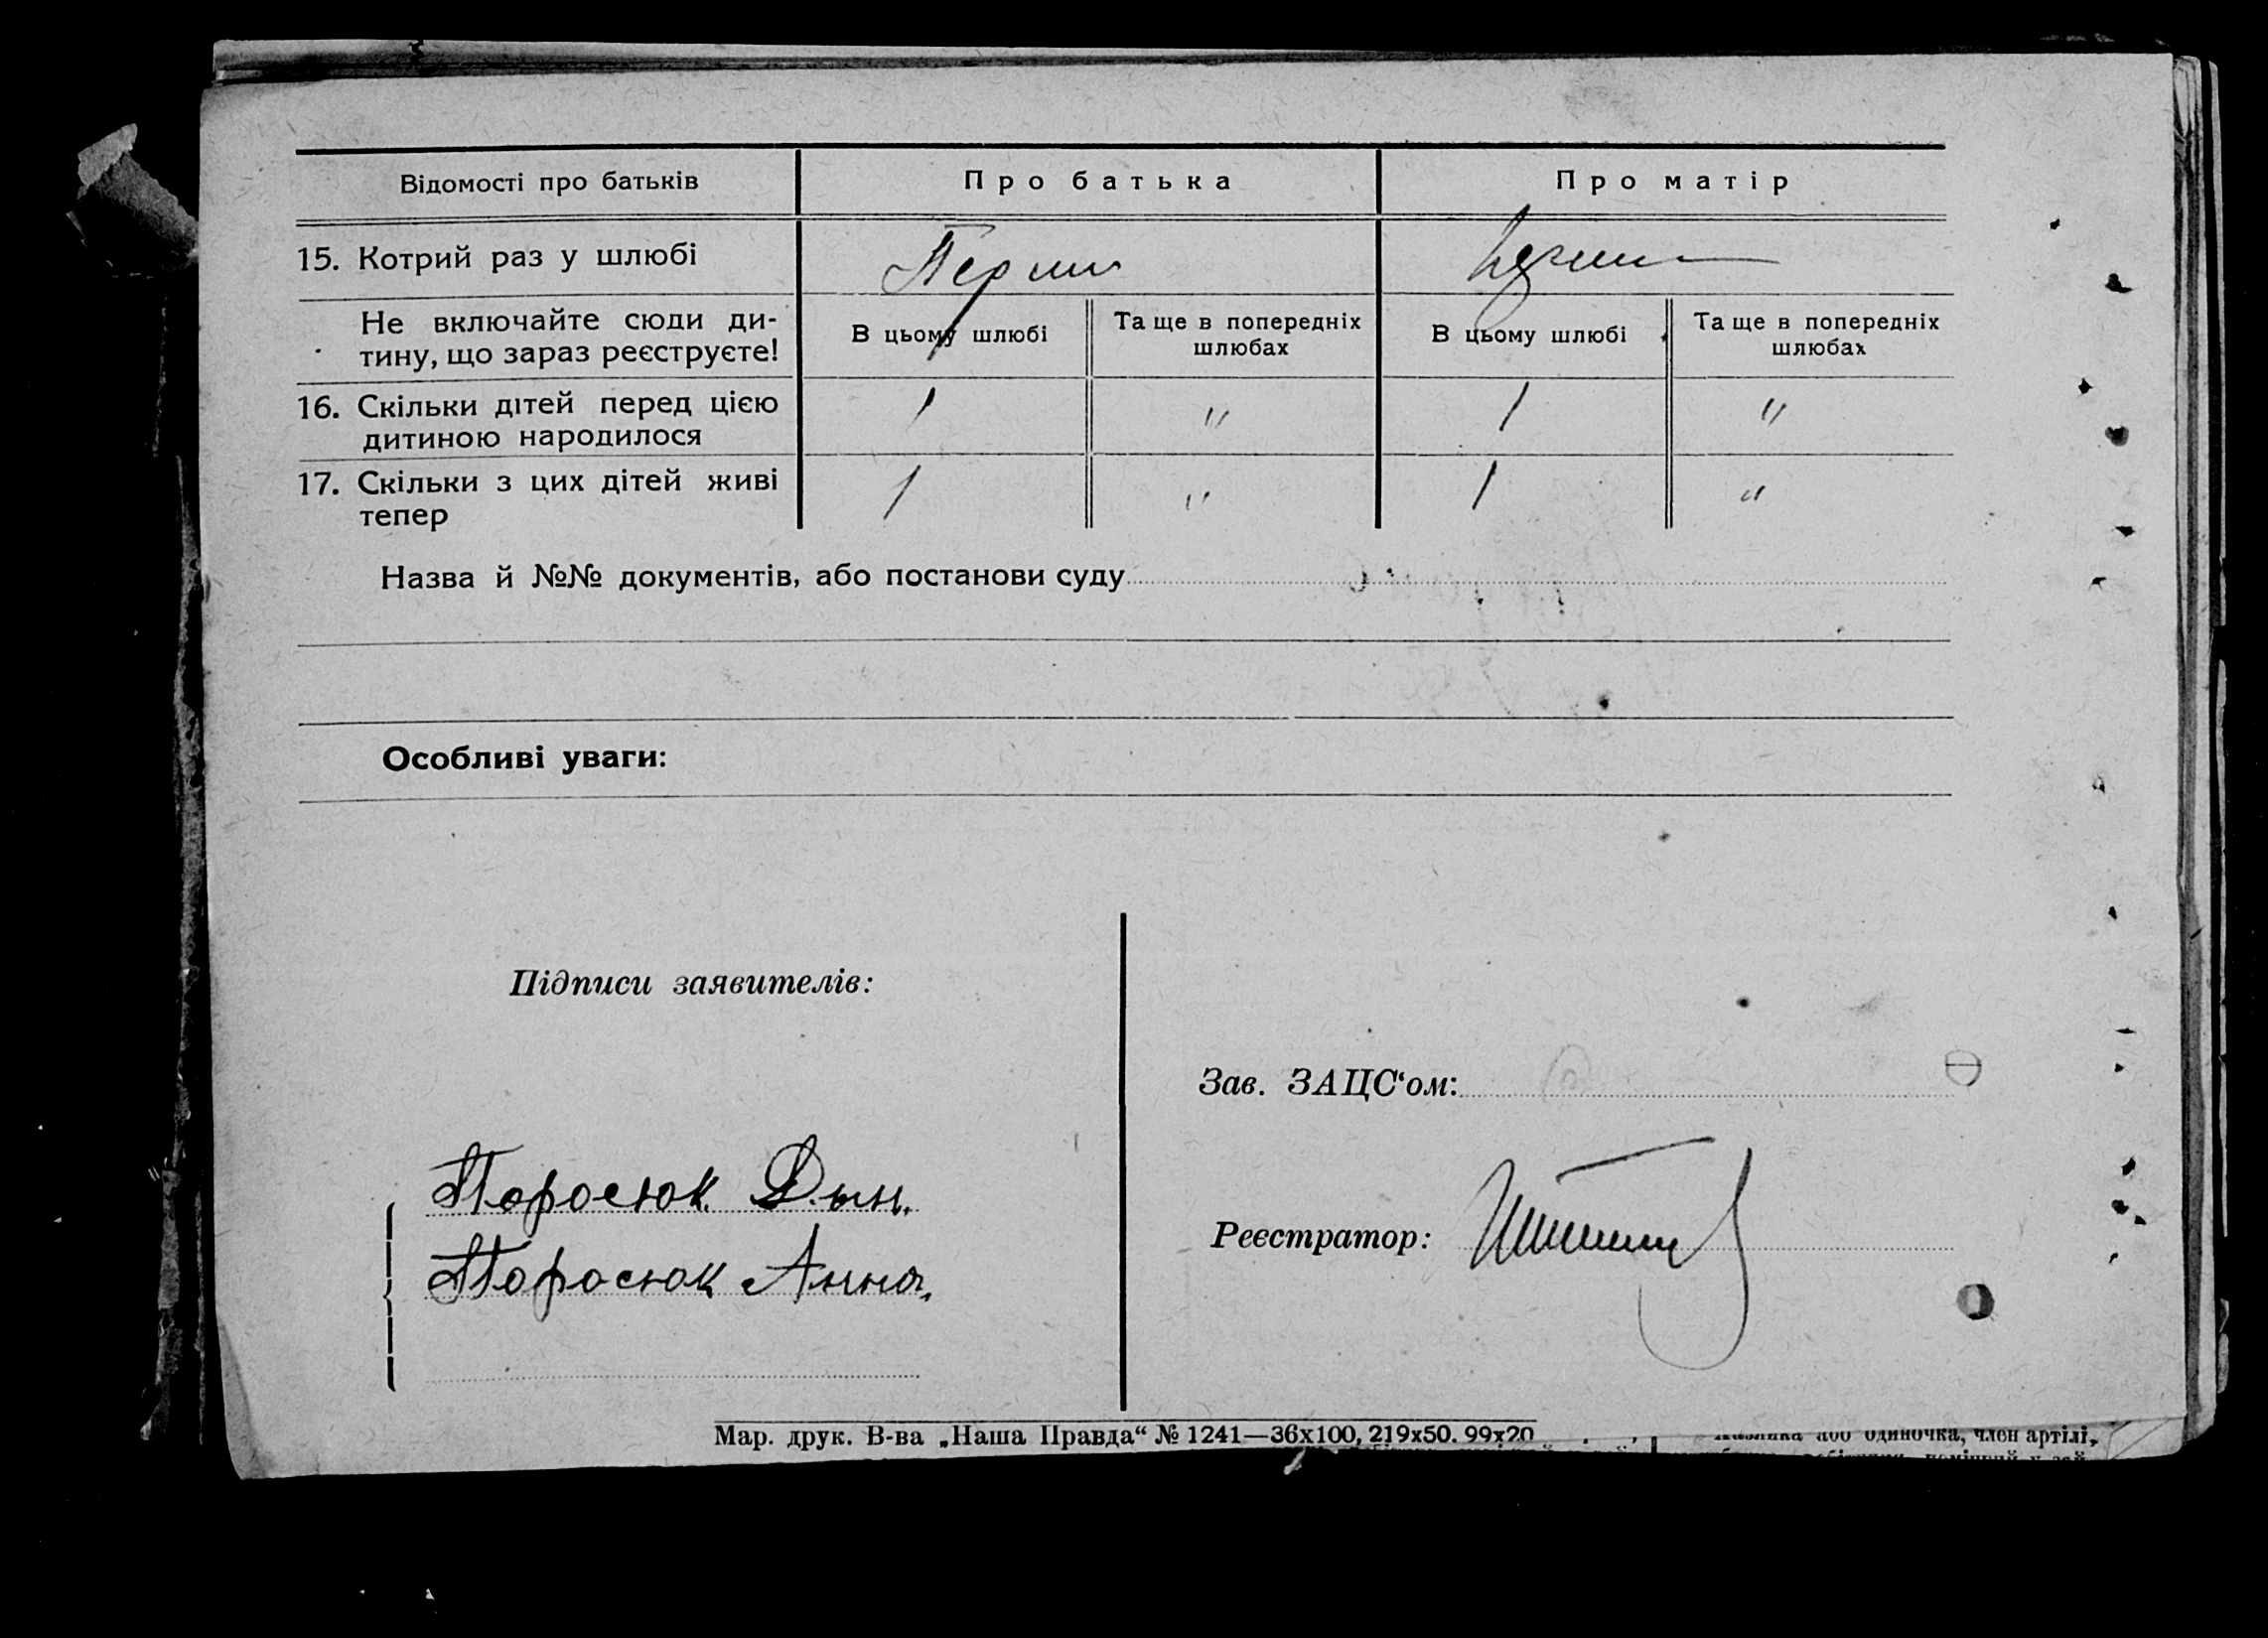 Відомості про батьків
Про батька
Про матір
15. Котрий раз у шлюбі
Перши
Не включайте сюди ди-
тину, що зараз реєструєте!
В цьому шлюбі
Та ще в попередніх
шлюбах
В цьому шлюбі
Та ще в попередніх
шлюбах
16. Скільки дітей перед цією
дитиною народилося
1 " 1 "
17. Скільки з цих дітей живі
тепер
1 " 1 "
Назва й №№ документів, або постанови суду
Особливі уваги:
Підписи заявителів:
Поросюк
Поросюк Анна.
Зав. ЗАЦС‘ом:
Реєстратор:
Мар. друк. В-ва „Наша Правда“ № 1241—36х100, 219х50. 99х20
або одиночка, член артілі,